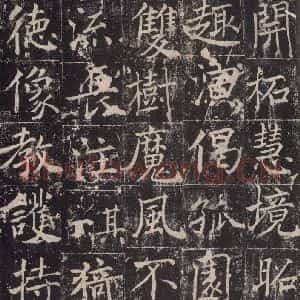 開拓慧境昭
趣演偈孤園
雙樹魔風不
流長注猗
德像教護持